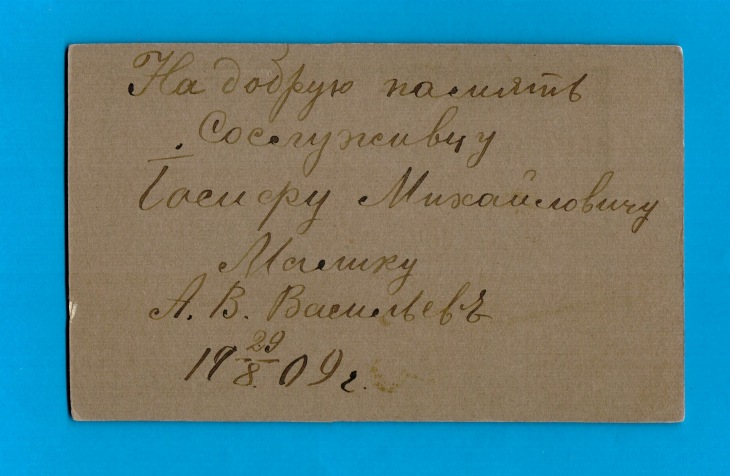 На добрую память
Сослуживцу
Іосифу Михайловичу
Малику
А. В. Васильевъ
19 29/8. 09 г.